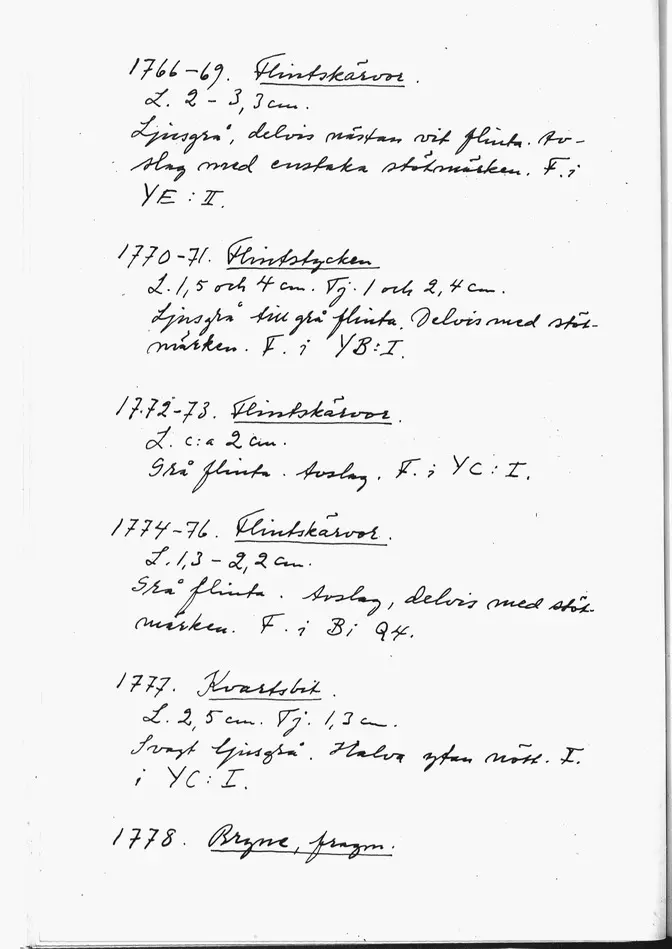 1766-69. Flintskärvor.
L. 2 - 3,3 cm.
Ljusgrå, delvis nästan vit flinta. Av-
slag med enstaka stötmärken. F. i
YE : II.
1770-71. Flintstycken
L. 1,5 och 4 cm. Tj. 1 och 2,4 cm.
Ljusgrå till grå flinta. Delvis med stöt-
märken. F. i YB:I.
1772-73. Flintskärvor.
L. c:a 2 cm.
Grå flinta. Avslag. F. i YC : I.
1774-76. Flintskärvor.
L. 1,3 - 2,2 cm.
Grå flinta. Avslag, delvis med stöt-
märken. F. i Bi Q4.
1777. Kvartsbit.
L. 2,5 cm. Tj. 1,3 cm.
Svagt ljusgrå. Halva ytan nött. F.
i YC : I.
1778. Bryne, fragm.